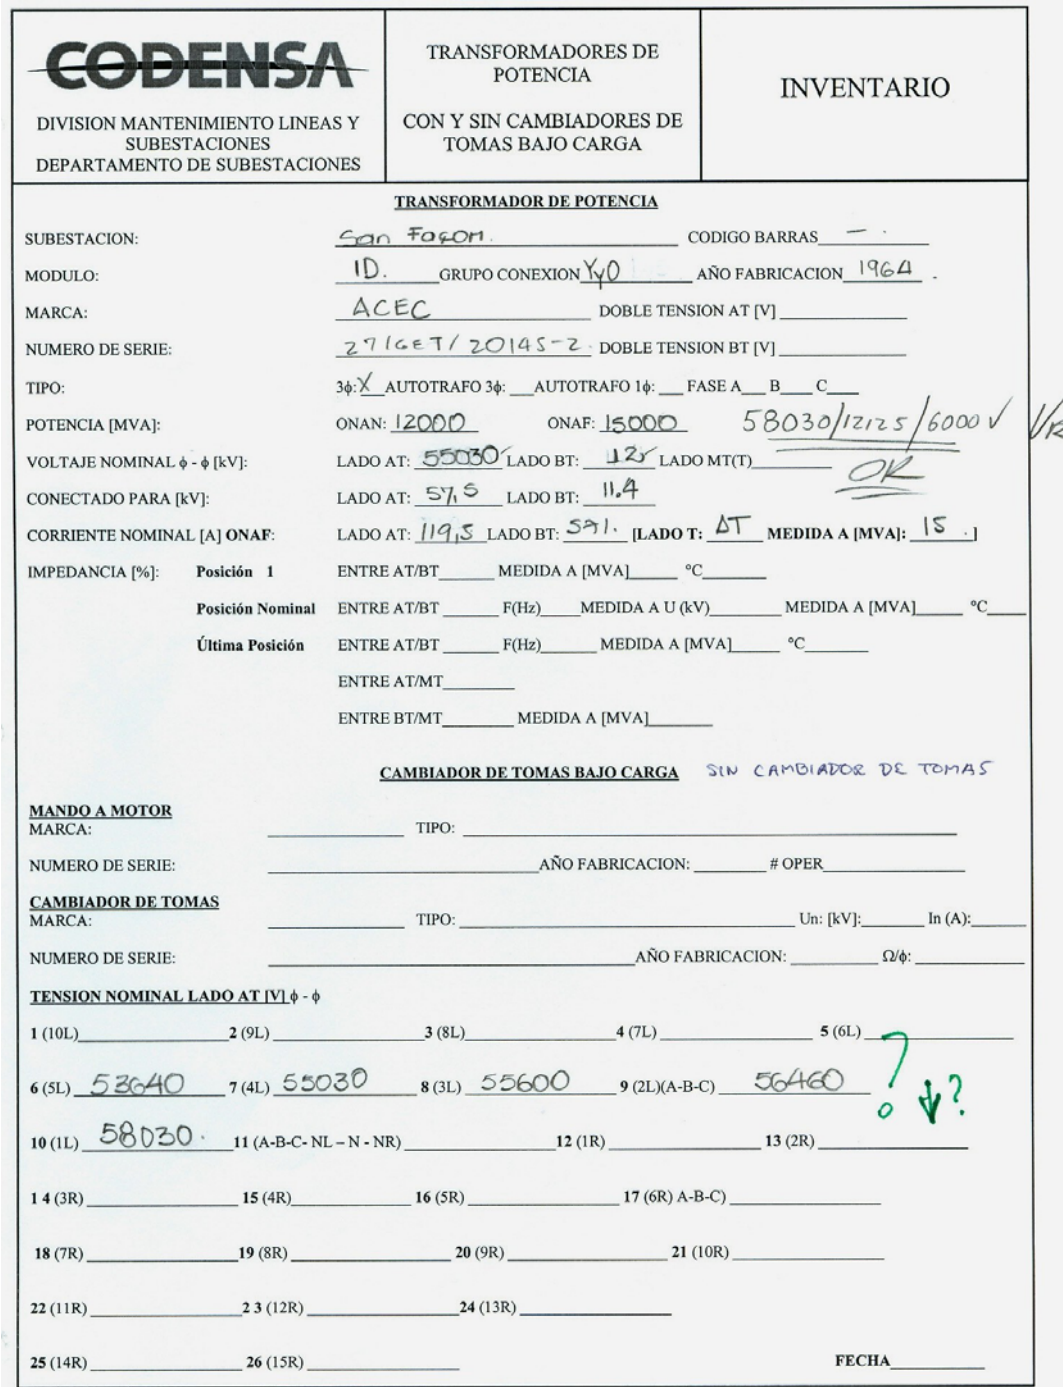 CODENSA
DIVISION MANTENIMIENTO LINEAS Y
SUBESTACIONES
DEPARTAMENTO DE SUBESTACIONES
TRANSFORMADORES DE
POTENCIA
CON Y SIN CAMBIADORES DE
TOMAS BAJO CARGA
INVENTARIO
TRANSFORMADOR DE POTENCIA
SUBESTACION: San Façon. CODIGO BARRAS — .
MODULO: 1D. GRUPO CONEXION Yy0 AÑO FABRICACION 1964 .
MARCA: ACEC DOBLE TENSION AT [V]
NUMERO DE SERIE: 27/GET/20145-2. DOBLE TENSION BT [V]
TIPO: 3ϕ: X AUTOTRAFO 3ϕ: ___ AUTOTRAFO 1ϕ: ___ FASE A___ B___ C___
POTENCIA [MVA]: ONAN: 12000 ONAF: 15000 58030/12125/6000 V
VOLTAJE NOMINAL ϕ - ϕ [kV]: LADO AT: 55030 LADO BT: 12 LADO MT(T) OK
CONECTADO PARA [kV]: LADO AT: 57,5 LADO BT: 11.4
CORRIENTE NOMINAL [A] ONAF: LADO AT: 119,5 LADO BT: 571. [LADO T: ΔT MEDIDA A [MVA]: 15 .]
IMPEDANCIA [%]: Posición 1 ENTRE AT/BT______ MEDIDA A [MVA]______ °C______
Posición Nominal ENTRE AT/BT ______ F(Hz)____ MEDIDA A U (kV)______ MEDIDA A [MVA]_____ °C____
Última Posición ENTRE AT/BT ______ F(Hz)______ MEDIDA A [MVA]_____ °C______
ENTRE AT/MT______
ENTRE BT/MT______ MEDIDA A [MVA]______
CAMBIADOR DE TOMAS BAJO CARGA SIN CAMBIADOR DE TOMAS
MANDO A MOTOR
MARCA: ______ TIPO: ______
NUMERO DE SERIE: ______ AÑO FABRICACION: ______ # OPER______
CAMBIADOR DE TOMAS
MARCA: ______ TIPO: ______ Un: [kV]:______ In (A):______
NUMERO DE SERIE: ______ AÑO FABRICACION: ______ Ω/ϕ: ______
TENSION NOMINAL LADO AT [V] ϕ - ϕ
1 (10L)______ 2 (9L)______ 3 (8L)______ 4 (7L)______ 5 (6L)______
6 (5L) 53640 7 (4L) 55030 8 (3L) 55600 9 (2L)(A-B-C) 56460 ? ↓?
10 (1L) 58030. 11 (A-B-C- NL – N - NR)______ 12 (1R)______ 13 (2R)______
1 4 (3R)______ 15 (4R)______ 16 (5R)______ 17 (6R) A-B-C)______
18 (7R)______ 19 (8R)______ 20 (9R)______ 21 (10R)______
22 (11R)______ 2 3 (12R)______ 24 (13R)______
25 (14R)______ 26 (15R)______ FECHA______